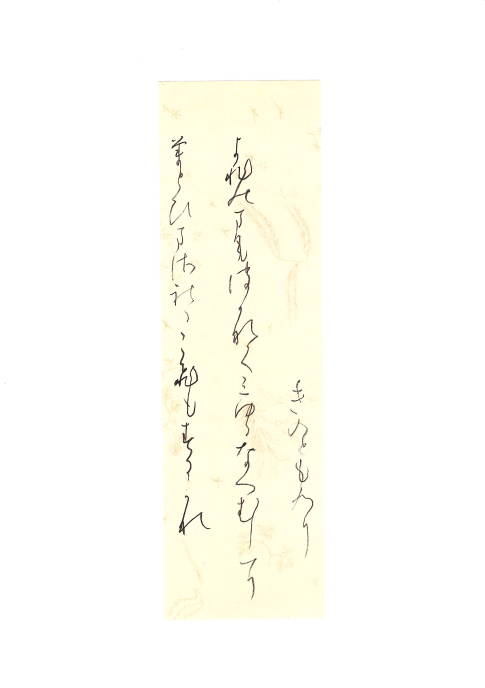 きのとものり
よひのまもはかなくみゆるなつむしに
まとひまされるこひもするかな